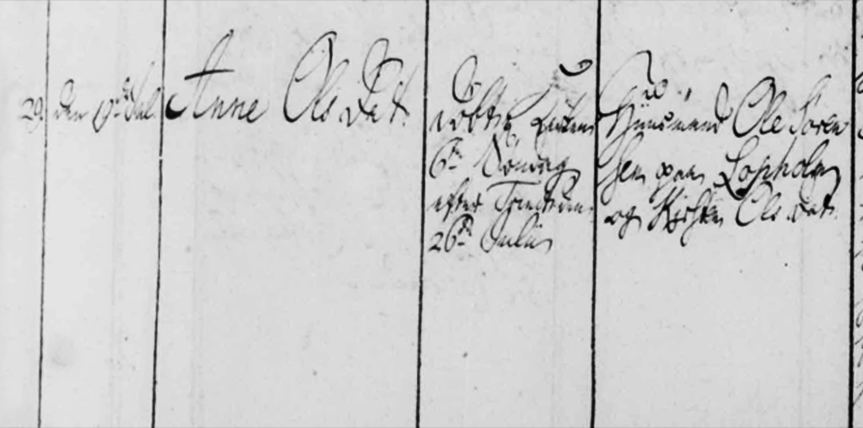 29. den 19de Jul
Anne Ols Dat.
Døbt i Kirken
6te Søndag
efter Trinitatis
26de Julii
Huusmand Ole Søren
sen paa Lopholm
og Kirsten Ols Dat.